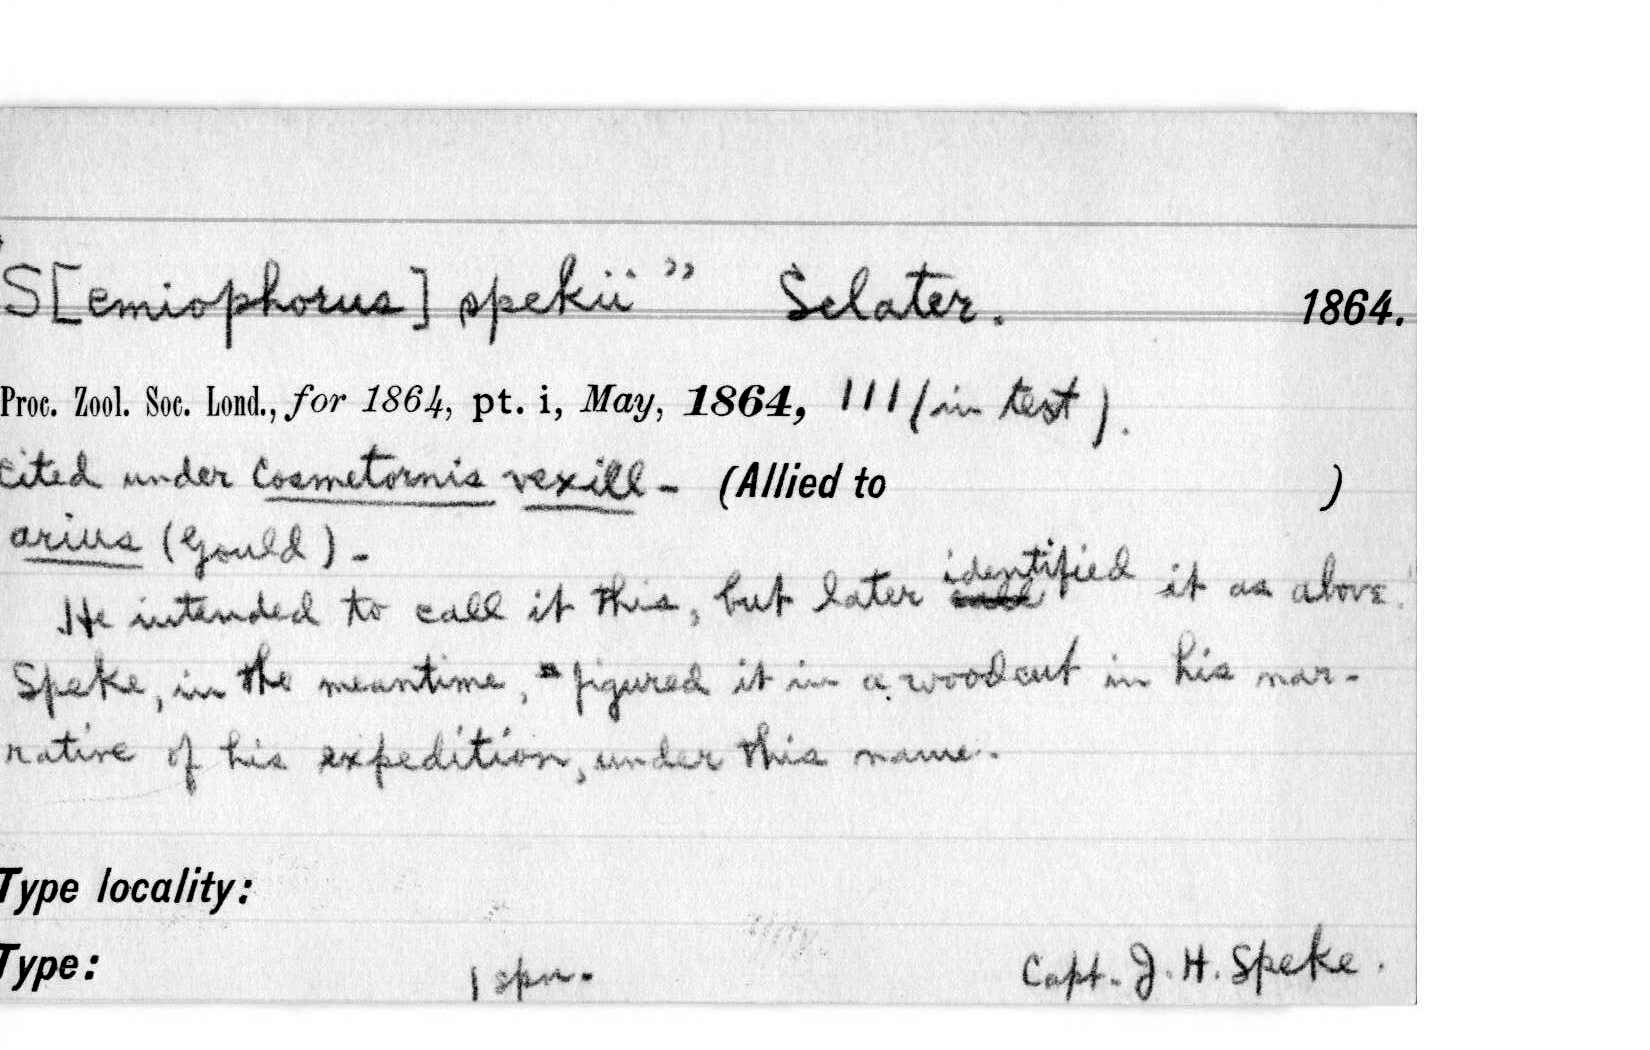 "S[emiophorus] spekii" Sclater. 1864.
Proc. Zool. Soc. Lond., for 1864, pt. i, May, 1864, 111 (in text).
cited under Cosmetornis vexill- (Allied to )
arius (Gould) -
He intended to call it this, but later identified it as above.
Speke, in the meantime, figured it in a woodcut in his nar-
rative of his expedition, under this name.
Type locality:
Type: 1 spn. Capt. J. H. Speke.